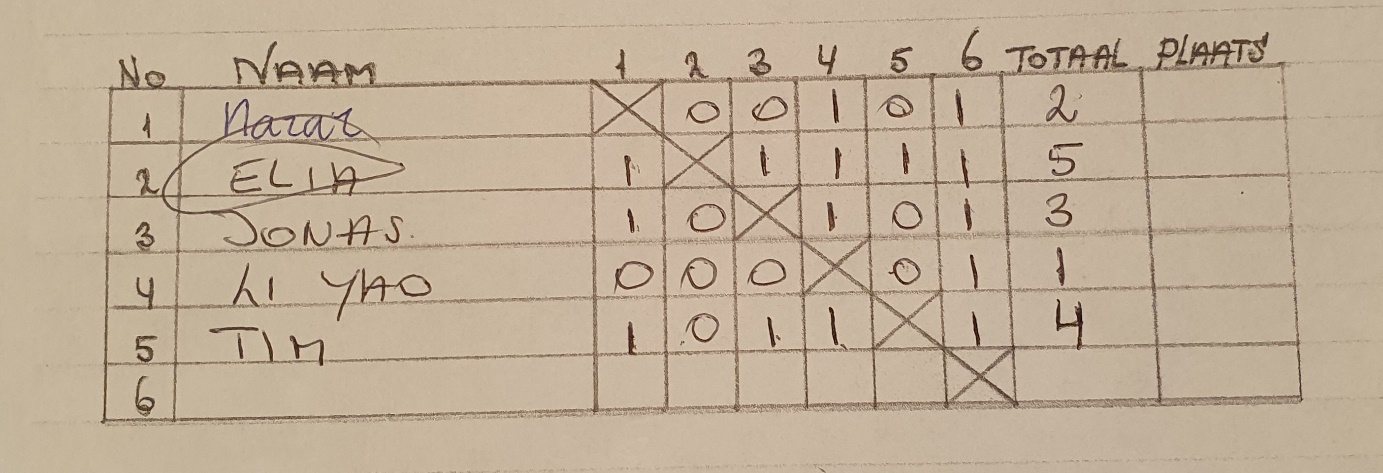 No NAAM 1 2 3 4 5 6 TOTAAL PLAATS
1 Nazar 0 0 1 0 1 2
2 ELIA 1 1 1 1 1 5
3 JONAS. 1 0 1 0 1 3
4 LI YAO 0 0 0 0 1 1
5 TIM 1 0 1 1 1 4
6